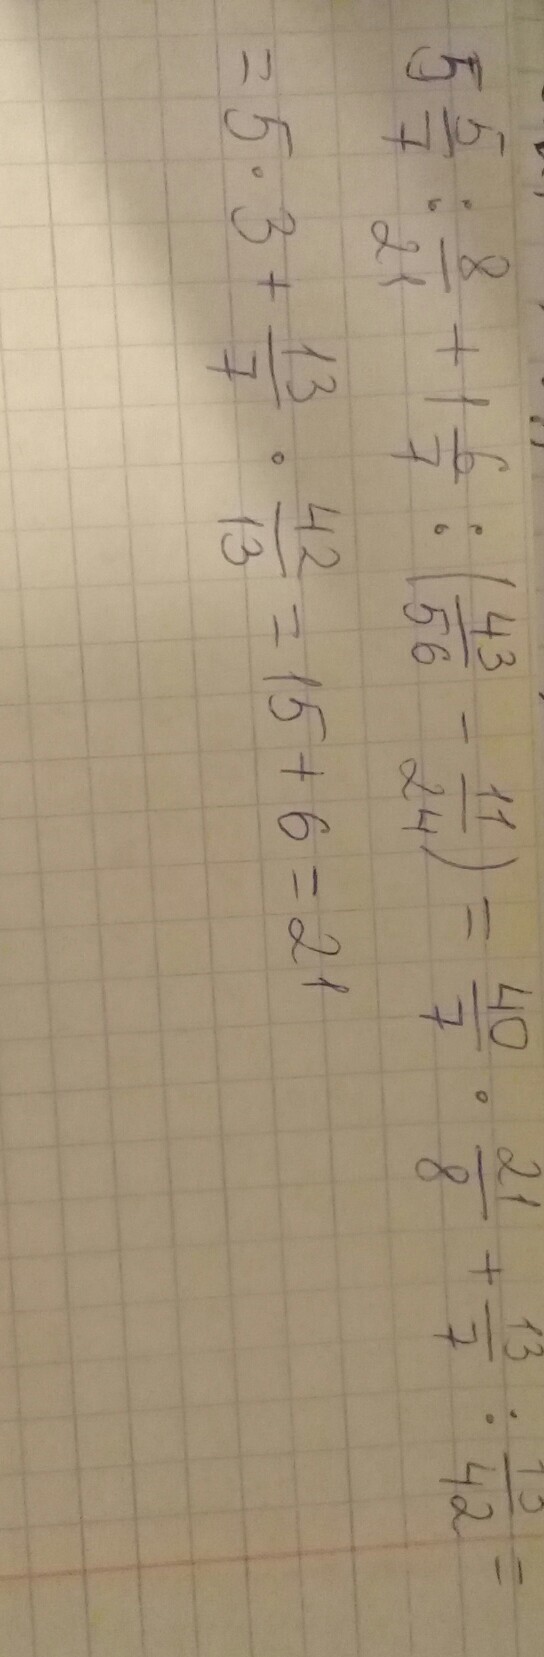 5 5/7 : 8/21 + 1 6/7 : (43/56 - 11/24) = 40/7 · 21/8 + 13/7 : 13/42 =
= 5 · 3 + 13/7 · 42/13 = 15 + 6 = 21